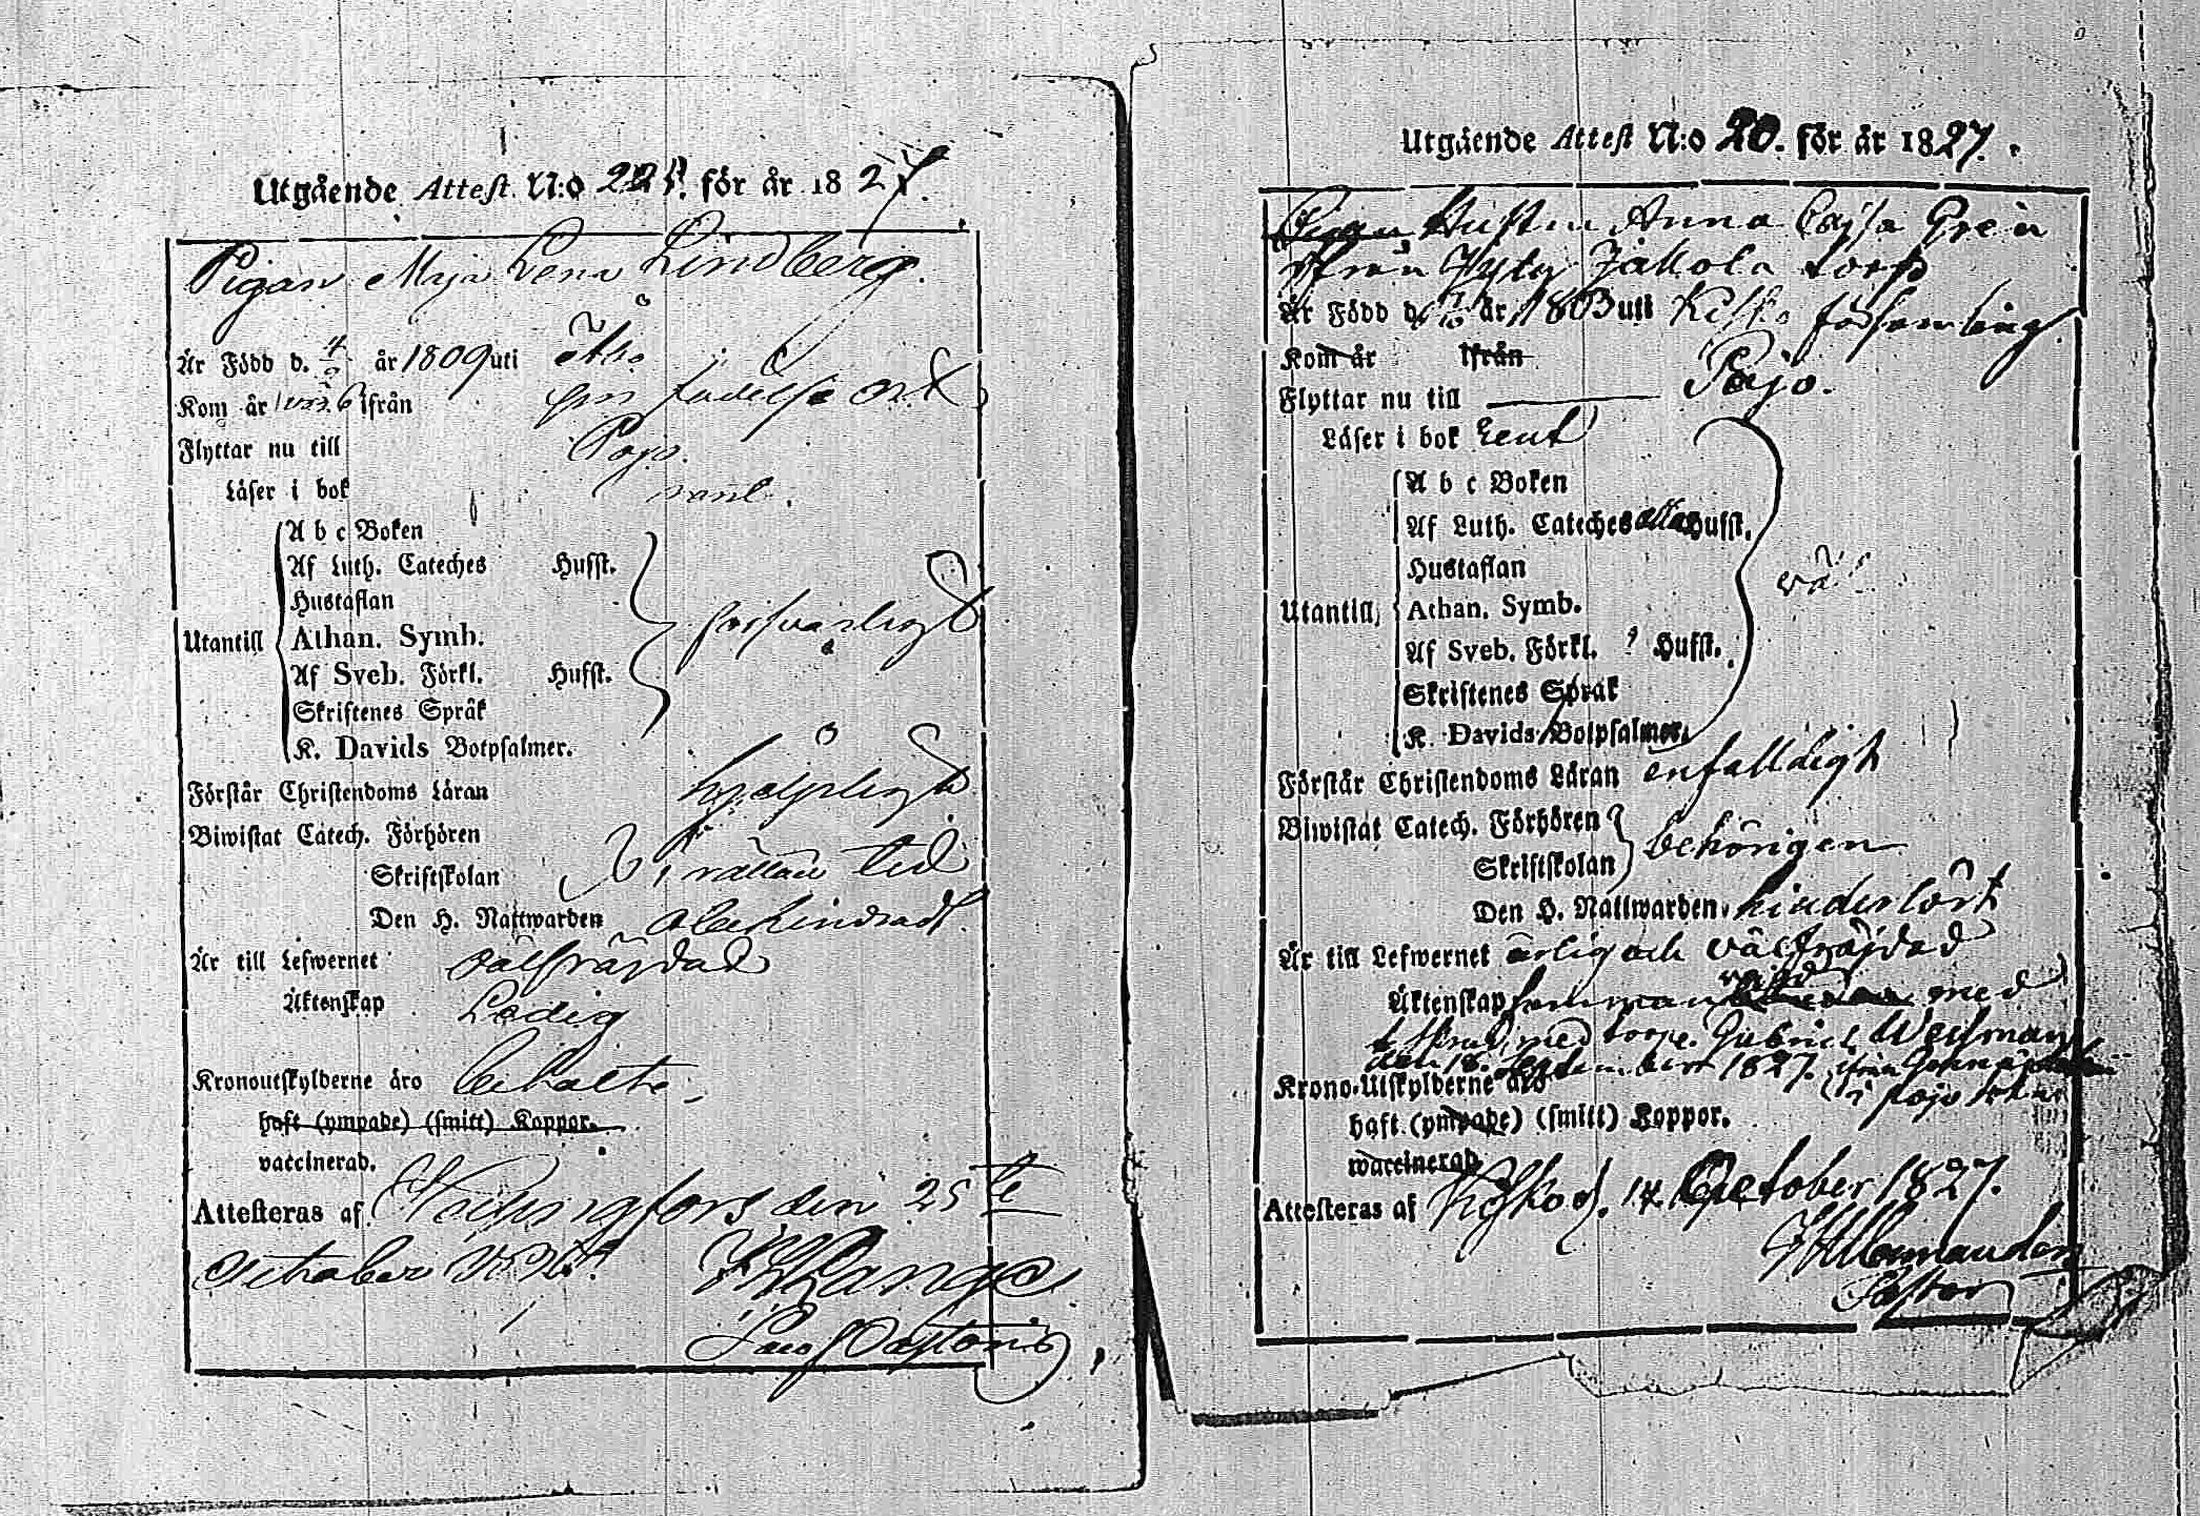 Utgående Attest N:o 22 för år 1827.
Pigan Maja Lena Lindberg.
Är Född d. 4 år 1809 uti
Kom år ifrån sin födelse ort
Flyttar nu till Pojo.
Läser i bok rent.
Utantill
A b c Boken
Af Luth. Cateches Hufst.
Hustaflan
Athan. Symb.
Af Sveb. Förkl. Hufst.
Skriftenes Språk
K. Davids Botpsalmer.
försvarligt
Förstår Christendoms Läran hjelpligt
Biwistat Catech. Förhören
Skriftskolan i rättan tid
Den H. Nattwarden obehindradt.
Är till Lefwernet välfräjdad
Äktenskap Ledig
Kronoutskylderne äro betalte
haft (ympade) (smitt) Koppor.
vaccinerad.
Attesteras af Helsingfors den 25te
October
Lange
Pastoris
Utgående Attest N:o 20. för år 1827.
Pigan Hustru Anna Cajsa Gren
ifrån Jakola torp
Är Född d. år 1803 uti Kisko församling
Kom år ifrån
Flyttar nu till Pojo.
Läser i bok rent
Utantill,
A b c Boken
Af Luth. Cateches alla Hufst.
Hustaflan
Athan. Symb.
Af Sveb. Förkl. Hufst.
Skriftenes Språk
K. Davids Botpsalmer.
väl.
Förstår Christendoms Läran enfalldigt
Biwistat Catech. Förhören
Skriftskolan behörigen
Den H. Nattwarden hinderlöst
Är till Lefwernet ärlig och välfräjdad
Äktenskap sammanvigd med
med torp. Gabriel Westman
den 18. September 1827. ifrån
i Pojo
Krono-Utskylderne äro
haft (ympade) (smitt) Koppor.
waccinerad
Attesteras af Kisko d. 14 October 1827.
Pastor